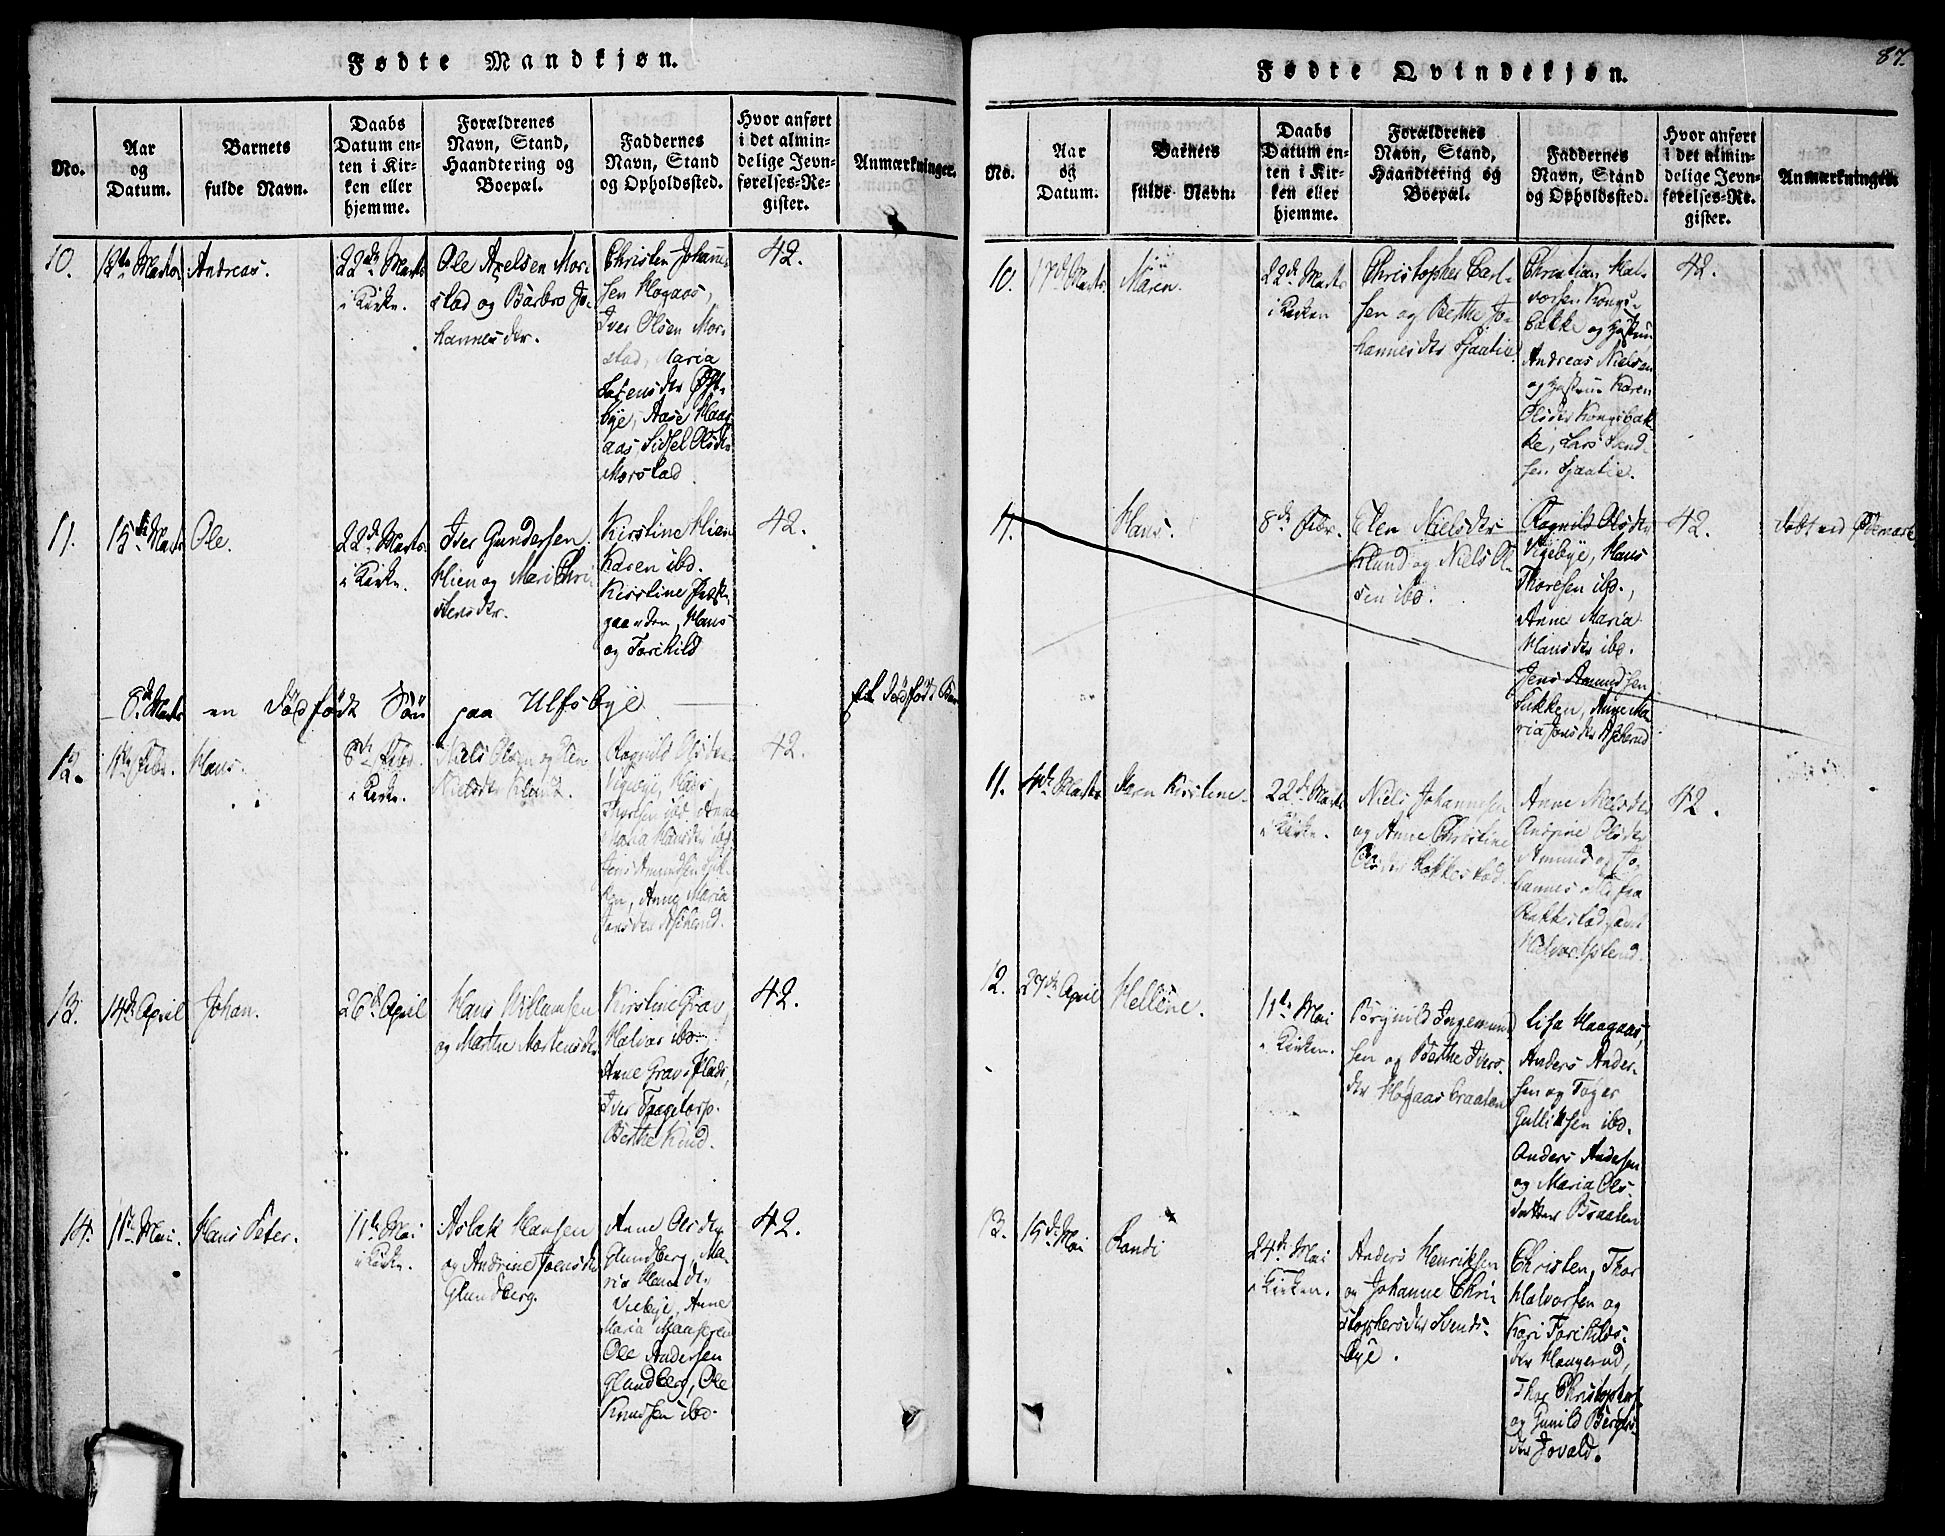 Fødte Mandkjøn.
No.
Aar
og
Datum.
Barnets
fulde Navn.
Daabs
Datum en-
ten i Kir-
ken eller
hjemme.
Forældrenes
Navn, Stand,
Haandtering og
Boepæl.
Faddernes
Navn, Stand
og Opholdssted.
Hvor anført
i det almin-
delige Jevn-
førelses-Re-
gister.
Anmærkninger.
10.
12te Marts
Andreas.
22de Marts
i Kirke.
Ole Axelsen Mor-
stad og Barbro Jo-
hannesdr.
Christen Johannes
sen Høgaas,
Iver Olsen Mor-
stad, Maria
Bye, Aase
aas, Sidsel Olsdr
Morstad.
42.
11.
15de Marts
Ole.
22de Marts
i Kirke.
Iver Gundersen
Hien og Mari Chri
stensdr.
Kirstine Hien
Karen ibd.
Kirstine
gaarden, Hans
og Torchild
42.
8de Marts en dødfødt Søn paa Ulfsbye
et dødfødt Barn
12.
Febr.
Hans.
8de Febr.
i Kirke.
Niels Olsen og Elen
Nielsdr Klund.
Ragnild Olsdr
Vigebye, Hans
Thoresen ibd. Anne
Maria Hansdr ibd
Jens Amundsen Luk-
ken, Anne Maria
Jensdr
42.
13.
14de April
Johan.
26de April
Hans Willumsen
og Marthe Mortensdr
Kirstine Grav,
Halvor ibd.
Anne Gravs Plads,
Iver Taagetorp.
Berthe Krud.
42.
14.
1ste Mai.
Hans Peter.
11te Mai
i Kirke.
Aslak Hansen
og Andrine Joensdr
Glundberg.
Anne Olsdr
Glundberg, Ma-
ria
Viebye, Anne
Maria
Ole Andersen
Glundberg, Ole
Knudsen ibd.
42.
87.
Fødte Qvindekjøn.
No.
Aar
og
Datum.
Barnets
fulde Navn.
Daabs
Datum en-
ten i Kir-
ken eller
hjemme.
Forældrenes
Navn, Stand,
Haandtering og
Boepæl.
Faddernes
Navn, Stand
og Opholdssted.
Hvor anført
i det almin-
delige Jevn-
førelses-Re-
gister.
Anmærkninger.
10.
17de Marts
Maren.
22de Marts
i Kirken
Christopher Carl-
sen og Berthe Jo-
hannesdr
Christian Hal-
vorsen Kongs-
bakke og Hustrue
Andreas Nielsen
og Hustrue Karen
Olsdr Kongsbak-
ke, Lars
sen
42.
11.
Hans.
8de Febr.
Elen Nielsdr
Klund og Niels Ol-
sen ibd.
Ragnild Olsdr
Vigebye, Hans
Thoresen ibd.,
Anne Maria
Hansdr ibd.
Jens Amundsen
Lukken, Anne Ma
ria Jensdr
42.
døbt ved
11.
4de Marts
Karen Kirstine.
22de Marts
i Kirke.
Niels Johannesen
og Anne Christine
Olsdr Rakkestad.
Anne Nielsdr
Olsdr
Amund og Jo-
hannes alle fra
Rakkestad samt
Halvor
42.
12.
27de April
Hellene.
11te Mai
i Kirken.
Børynild Ingemund
sen og Berthe Ivers-
dr Høgaas braaten
Lisa Haagaas,
Anders Ander-
sen og Toger
Gulliksen ibd.
Anders Andersen
og Maria Ols-
datter Braaten
13.
15de Mai
Randi
24de Mai
i Kirken.
Anders Henriksen
og Johanne Chri
stophersdr Svends-
bye.
Christen, Thor
Halvorsen og
Kari Torchilds-
dr Haugerud,
Thor Christophers.
og Gunild Børgers
dr Jovald.